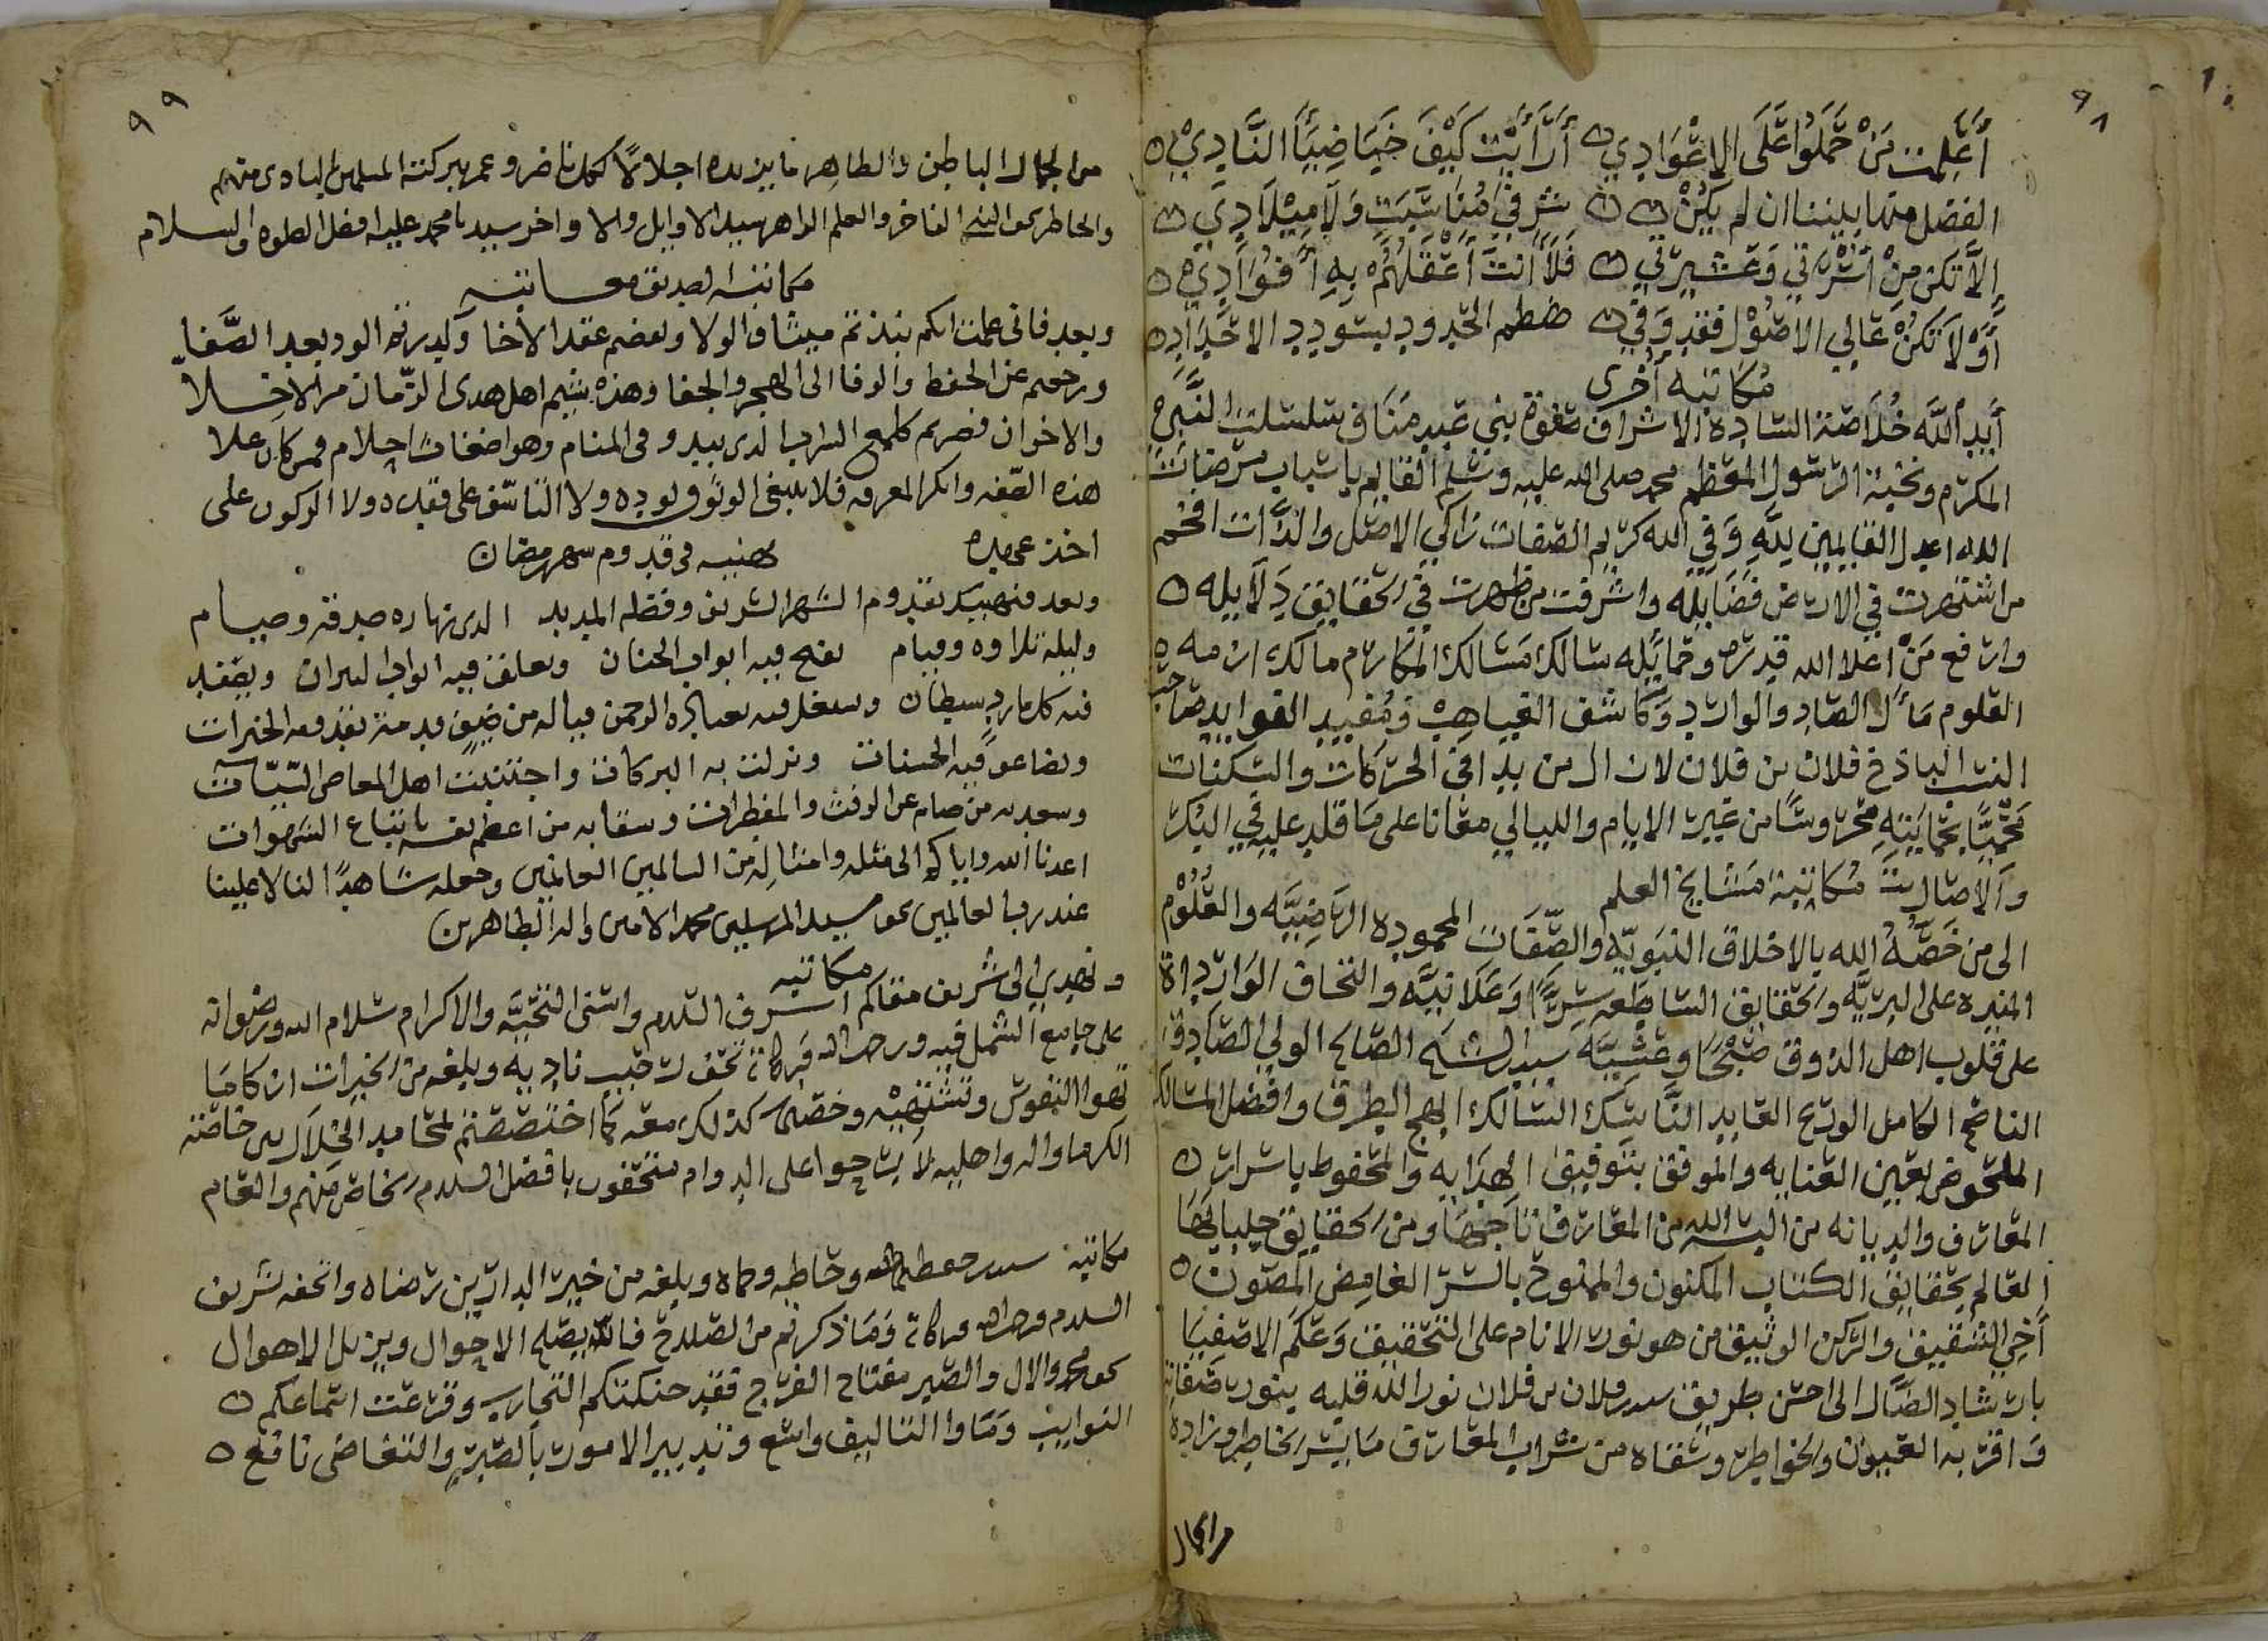 ٩٨
أَعَلِمت مَنْ حَمَلُوا عَلَى الاِعْوَادِي أَرَأَيْتَ كَيْفَ خَبَا ضِيَا النَّادِيْ
الفضل منها بيننا ان لم يكن شرفي مناسبت ولا ميلادي
إلا تكن من أسرتي وعشيرتي فلأنت أعقلهم به أفؤادي
أو لا تكن عالي الأصول فقد وفي عظم الجدود بسودد الاجداد
مُكاتبه أخرى
أيد الله خلاصة السادة الاشراف صفوة بني عبد مناف سلسلت النبي
المكرم ونخبة الرسول المعظم محمد صلى الله عليه وسلم القايم باسباب مرضات
الله اعدل القايمين لله وفي الله كريم الصفات زاكي الاصل والذات افخم
من اشتهرت في الارض فضايله واشرقت من ظهرت في الحقايق دلايله
وارفع من اعلا الله قدره وحمايله سالك مسالك المكارم مالك ازمه
العلوم مأل الصاد والوارد وكاشف الغياهب ومفيد الفوايد صاحب
النسب الباذخ فلان بن فلان لا زال من يد افق الحركات والسكنات
محميا بحمايته محروسا من غير الايام والليالي معانا على ما قلد عليه في البكر
والاصال مكاتبة مشايخ العلم
الى من خصه الله بالاخلاق النبويه والصفات المحموده الرضيه والعلوم
المنيره على البريه والحقايق الساطعه سرًا وعلانيه والتحاف الوارداة
على قلوب اهل الذوق صبحا وعشيه سيدنا الشيخ الصالح الولي الصادق
الناصح الكامل الورع العابد الناسك السالك ابهج الطرق وافضل المسالك
الملحوض بعين العنايه والموفق بتوفيق الهدايه والمحفوط باسرار
المعارف والديانه من البسه الله من المعارف تاجها ومن الحقايق جلبابها
العالم بحقايق الكتاب المكنون والممنوح بالسر الغامض المصون
أخي الشقيق والركن الوثيق من هو نور الانام على التحقيق وعلم الاصفيا
بارشاد الضال الى احسن طريق سيدي فلان بن فلان نور الله قلبه بنور صفاته
واقر به العيون والخواطر وسقاه من شراب المعارف ما يسر خاطره وزاده
من الجمال
٩٩
من الجمال الباطن والظاهر ما يزيده اجلالا كلما ناضر وعم ببركته المسلمين البادي منهم
والحاظر بحق النبي الفاخر والعلم الزاهر سيد الاوايل والاواخر سيدنا محمد عليه افضل الصلوه والسلام
مكاتبة لصديق معاتبه
وبعد فاني علمت انكم نبذتم ميثاق الولا ونقضتم عقد الاخا وكدرتم الود بعد الصفا
ورجعتم عن الحفظ والوفا الى الهجر والجفا وهذه شيم اهل هدى الزمان من الاخلا
والاخوان فصرتم كلمع السراب الذي يبدو وفي المنام وهو اضغاث احلام فمن كان علا
هذه الصفه وانكر المعرفه فلا ينبغي الوثوق بوده ولا التأسف على فقده ولا الركون على
اخذ عهده تهنيه في قدوم شهر رمضان
وبعد فنهنيكم بقدوم الشهر الشريف وفضله المديد الذي نهاره صدقة وصيام
وليله تلاوه وقيام تفتح فيه ابواب الجنان وتغلق فيه ابواب النيران ويصفد
فيه كل مارد سيطان ويشتغل فيه بعبادة الرحمن فياله من ضيف قدمنه تقدمه الخيرات
وتضاعف فيه الحسنات ونزلت به البركات واجتنبت اهل المعاصي السيات
وسعد به من صام عن الرفث والمفطرات وشقا به من اعطى نفسه باتباع الشهوات
اعدنا الله واياكم الى مثله وامثاله من السالمين الغانمين وجعله شاهدًا لنا لا علينا
عند رب العالمين بحق سيد المرسلين محمد الامين واله الطاهرين
مكاتبه
ونهدي الى شريف مقامكم اشرف السلام واسنى التحيه والاكرام سلام الله ورضوانه
على جامع الشمل فيه ورحمة الله وبركاته تحف رحيب ناديه ويبلغه من الخيرات ان كاما
تهوا النفوس وتشتهيه وخصنا كذلك معه كما اختصصتم لمحامد الخلال من خاصته
الكرما واله واهليه لا برحوا على الدوام متحفون بافضل السلام الخاص منهم والعام
مكاتبة سيدي حفظه الله وخاطبه وحماه وبلغه من خير الدارين رضاه واتحفه شريف
السلام ورحمة الله وبركاته وما ذكرتم من الصلاح فالله يصلح الاحوال ويزيل الاهوال
بحق محمد والال والصبر مفتاح الفرج فقد حنكتكم التجارب وقرعت اسماعكم
النوايب وما وا التاليف واسع وتدبير الامور بالصبر والتغاضى نافع